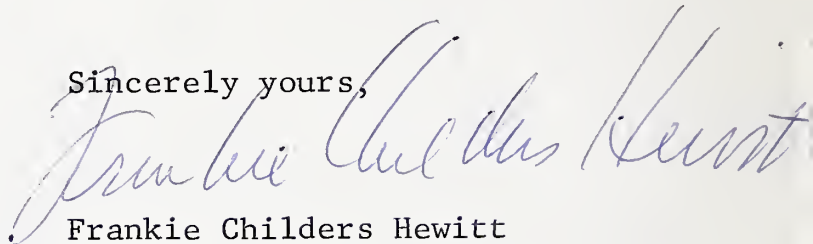 Sincerely yours,
Frankie Childers Hewitt
Frankie Childers Hewitt